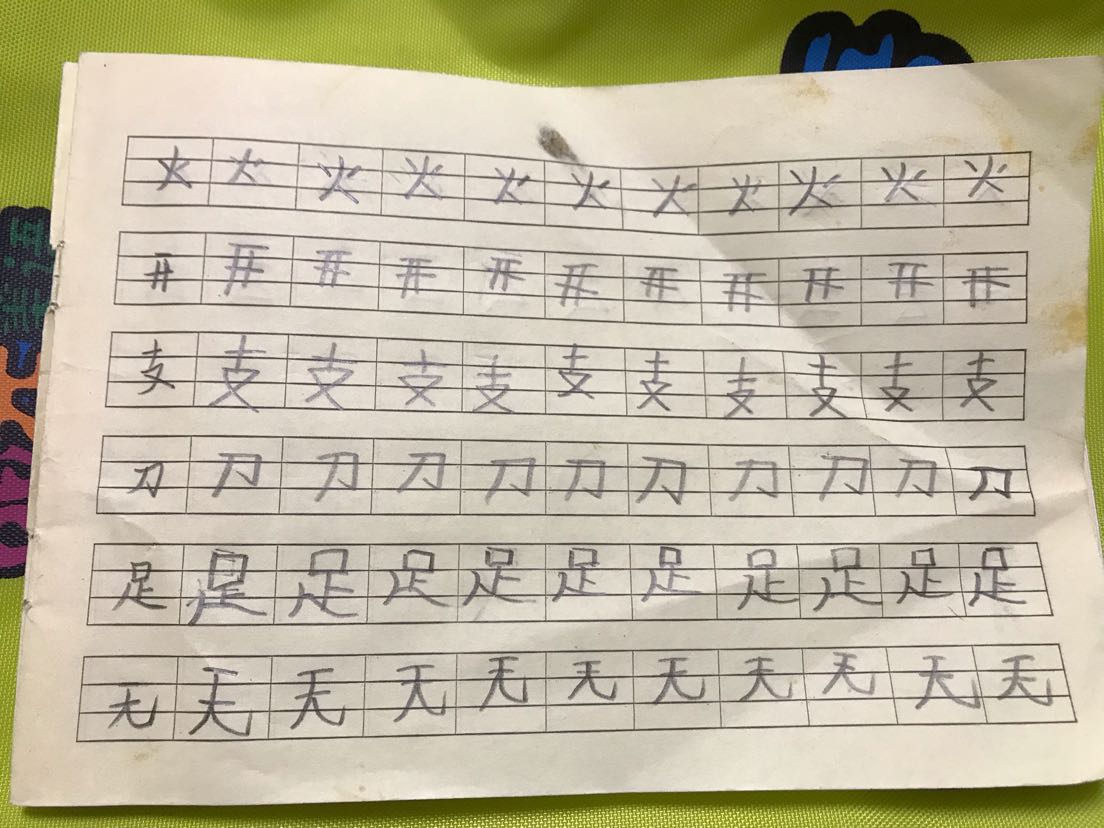 火 火 火 火 火 火 火 火 火 火 火
开 开 开 开 开 开 开 开 开 开 开
支 支 支 支 支 支 支 支 支 支 支
刀 刀 刀 刀 刀 刀 刀 刀 刀 刀 刀
足 足 足 足 足 足 足 足 足 足 足
无 无 无 无 无 无 无 无 无 无 无